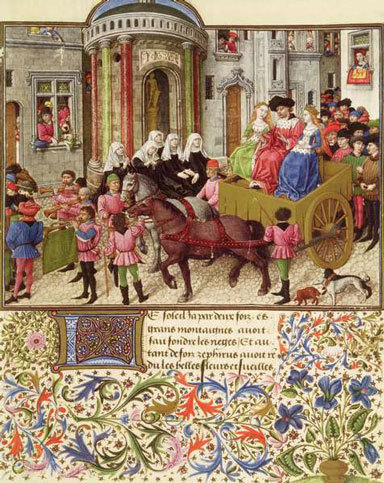 Le soleil ha par deux fois es
grans montaignes avoit
fait fondre les neges / Et au
tant de fois zephirus avoit re
du les belles fleurs et fueilles.